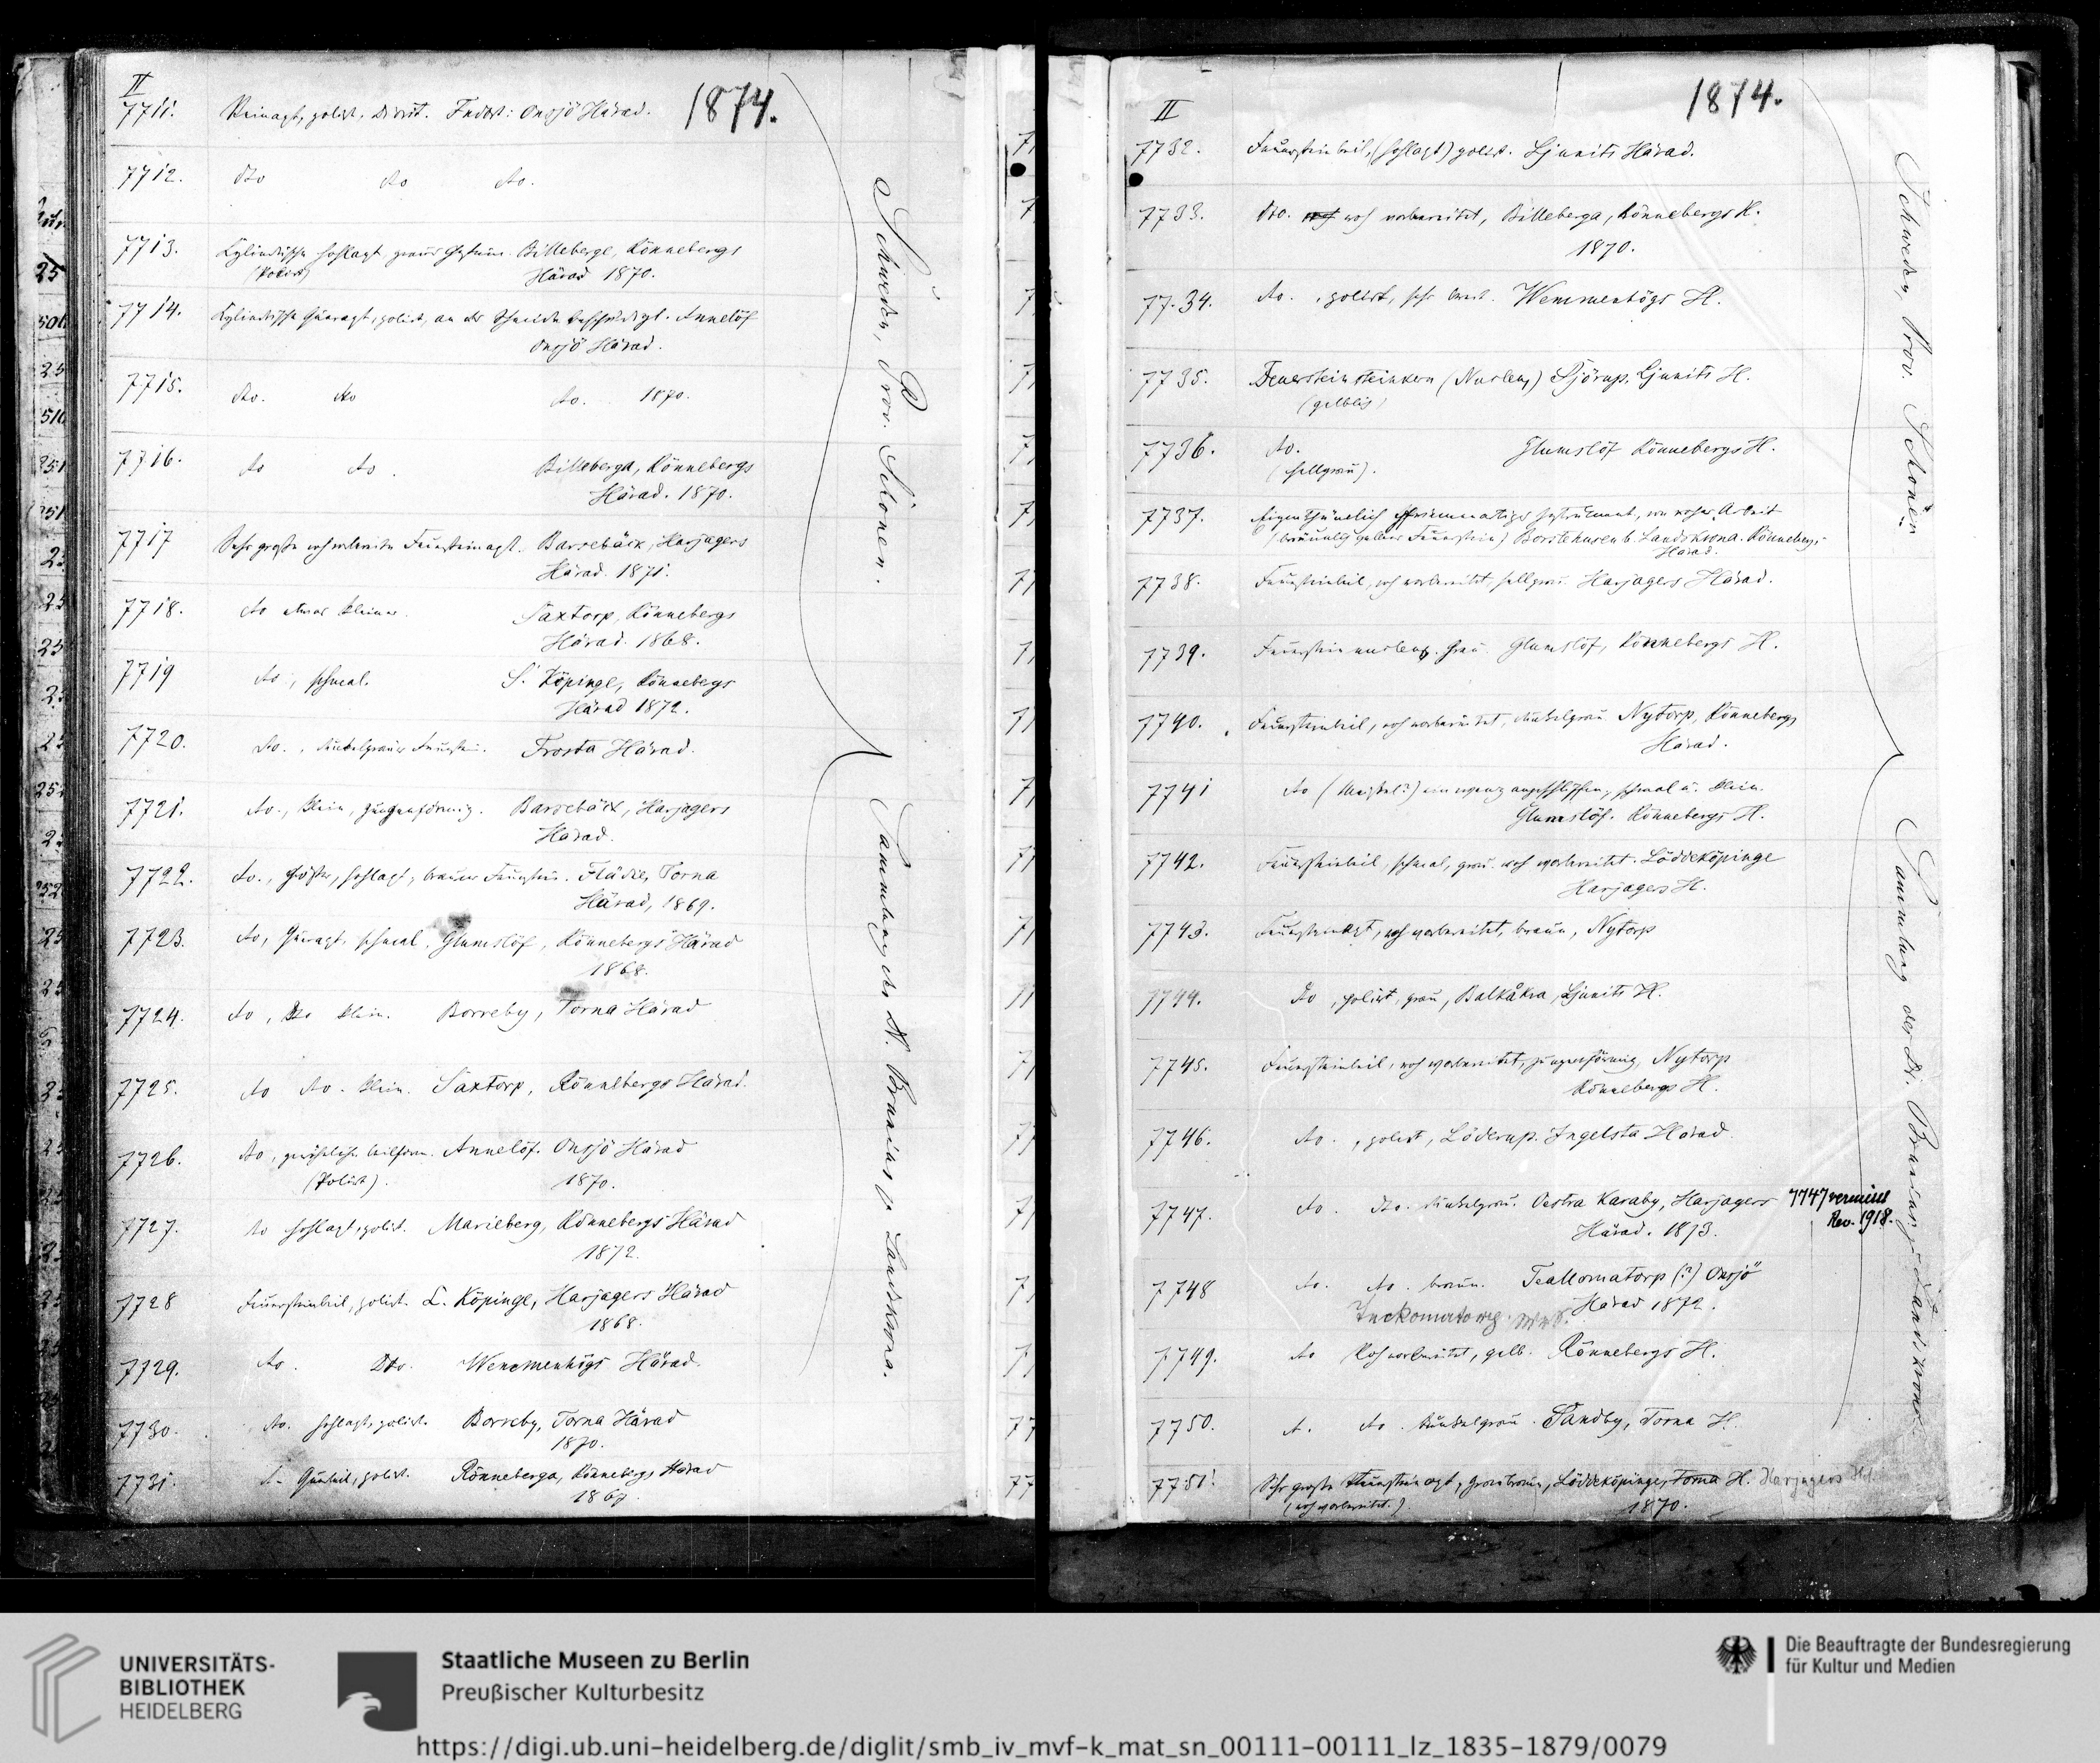 II
1874.
7711. polirt, Diorit. Fndrt: Onsjö Härad.
7712. dto do do.
7713. Cylindrische Hohlaxt Billeberge, Rönnebergs
(Polirt) Härad 1870.
7714. Cylindrische Queraxt, polirt, an der Schneide beschädigt. Annelöf
Onsjö Härad.
7715. do. do do. 1870.
7716. do do. Billeberga, Rönnebergs
Härad. 1870.
7717 Sehr große roh vorbereitete Feuersteinaxt. Barsebäck, Harjagers
Härad. 1871.
7718. do etwas kleiner. Saxtorp, Rönnebergs
Härad. 1868.
7719 do, schmal. S. Köpinge, Rönnebegs
Härad 1872.
7720. do., dunkelgrauer Feuerstein. Frosta Härad.
7721. do., klein, zungenförmig. Barsebäck, Harjagers
Härad.
7722. do., Hohlaxt, brauner Feuerstein. Flädie, Torna
Härad, 1869.
7723. do, Queraxt, schmal. Glumslöf, Rönnebergs Härad
1868.
7724. do, dto klein. Borreby, Torna Härad
7725. do do. klein. Saxtorp, Rönnebergs Härad.
7726. do, Annelöf. Onsjö Härad
(Polirt). 1870.
7727. do Hohlaxt, polirt. Marieberg, Rönnebergs Härad
1872.
7728 Feuersteinbeil, polirt. L. Köpinge, Harjagers Härad
1868.
7729. do. Dto. Wemmenhögs Härad.
7730. do. Hohlaxt, polirt. Borreby, Torna Härad
1870.
7731. polirt. Rönneberga, Rönnebergs Härad
1867
Schweden, Prov. Schonen.
Sammlung des Dr. Brunius zu Landskrona.
II
1874.
7732. Feuersteinbeil, (Hohlaxt) polirt. Ljunits Härad.
7733. Dto. roh vorbereitet, Billeberga, Rönnebergs H.
1870.
7734. do., polirt, sehr breit. Wemmenhögs H.
7735. Feuerstein steinkern (Nucleus) Sjörup, Ljunits H.
(gelblich)
7736. do. Glumslöf Rönnebergs H.
(hellgrau).
7737. Eigenthümlich pfriemenartiges Instrument, von roher Arbeit
(bräunlich gelber Feuerstein) Borstehusen b. Landskrona. Rönnebergs-
Härad.
7738. Feuersteinbeil, roh vorbereitet, hellgrau. Harjagers Härad.
7739. Feuerstein nucleus. Grau. Glumslöf, Rönnebergs H.
7740. Feuersteinbeil, roh vorbereitet, dunkelgrau Nytorp, Rönnebergs
Härad.
7741 do (Meißel?) ein wenig angeschliffen, schmal u. klein.
Glumslöf. Rönnebergs H.
7742. Feuersteinbeil, schmal, grau. roh vorbereitet. Löddeköpinge
Harjagers H.
7743. Feuersteinaxt, roh vorbereitet, braun, Nytorp
7744. do, polirt, grau, Balkåkra, Ljunits H.
7745. Feuersteinbeil, roh vorbereitet, zungenförmig, Nytorp
Rönnebergs H.
7746. do., polirt, Löderup. Ingelsta Härad.
7747. do. do. dunkelgrau. Oestra Karaby, Harjagers
Härad. 1873.
7747 vermisst
Rev. 1918.
7748 do. do. braun. Teallomatorp (?) Onsjö
Härad 1872.
7749. do Roh vorbereitet, gelb. Rönnebergs H.
7750. do. dunkelgrau. Sandby, Torna H.
7751. Sehr große Feuersteinaxt, graubraun, Löddeköpinge, Torna H. Harjagers H.
(roh vorbereitet.) 1870.
Schweden, Prov. Schonen
Sammlung des Dr. Brunius zu Landskrona.
UNIVERSITÄTS-
BIBLIOTHEK
HEIDELBERG
Staatliche Museen zu Berlin
Preußischer Kulturbesitz
Die Beauftragte der Bundesregierung
für Kultur und Medien
https://digi.ub.uni-heidelberg.de/diglit/smb_iv_mvf-k_mat_sn_00111-00111_lz_1835-1879/0079